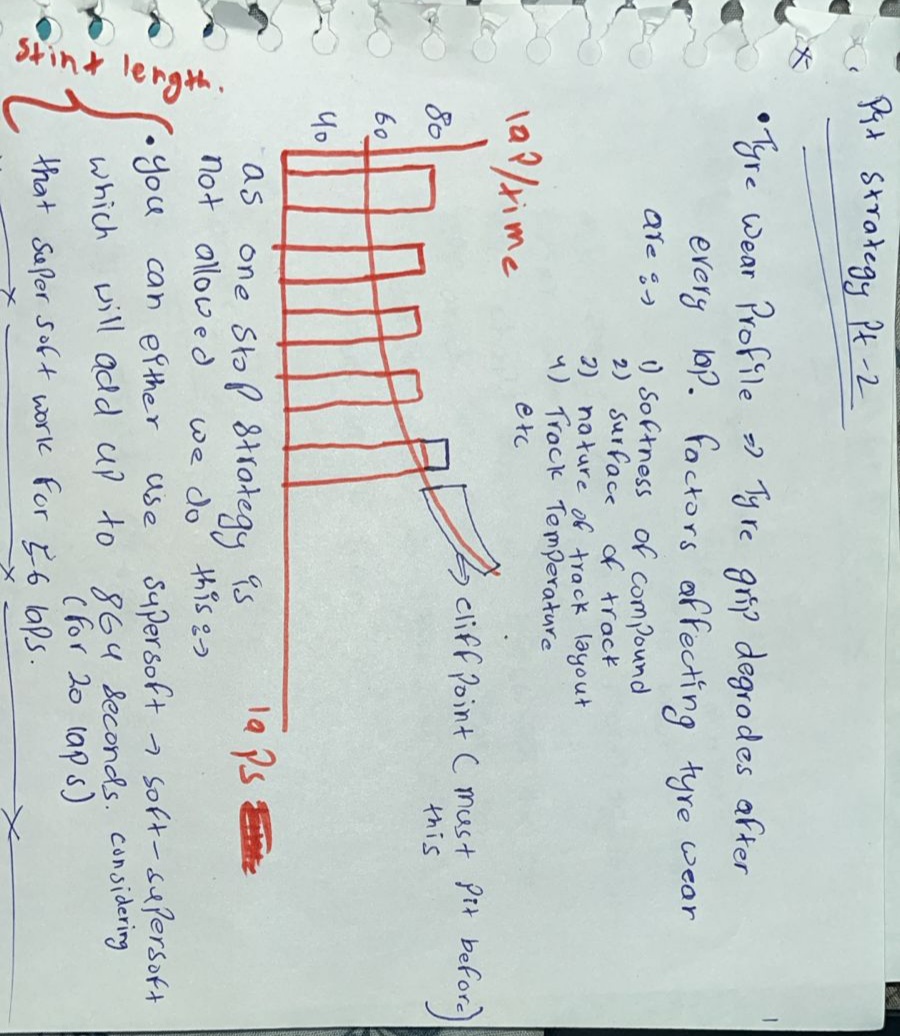 Pit strategy Pt-2
*
• Tyre wear Profile => Tyre grip degrades after
every lap. factors affecting tyre wear
are :->
1) Softness of compound
2) surface of track
2) nature of track layout
4) Track Temperature
etc
lap/time
80
60
40
cliff point (must pit before)
this
laps
as one stop strategy is
not allowed we do this :->
stint length.
• you can either use supersoft -> soft - supersoft
which will add up to 864 seconds. considering
(for 20 laps)
that super soft work for ≤6 laps.